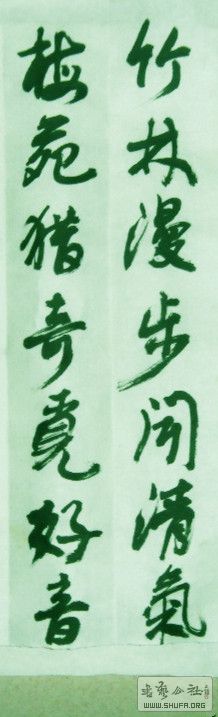 竹林漫步闻清氣
梅苑猎奇覓好音
书艺公社
WWW.SHUFA.ORG